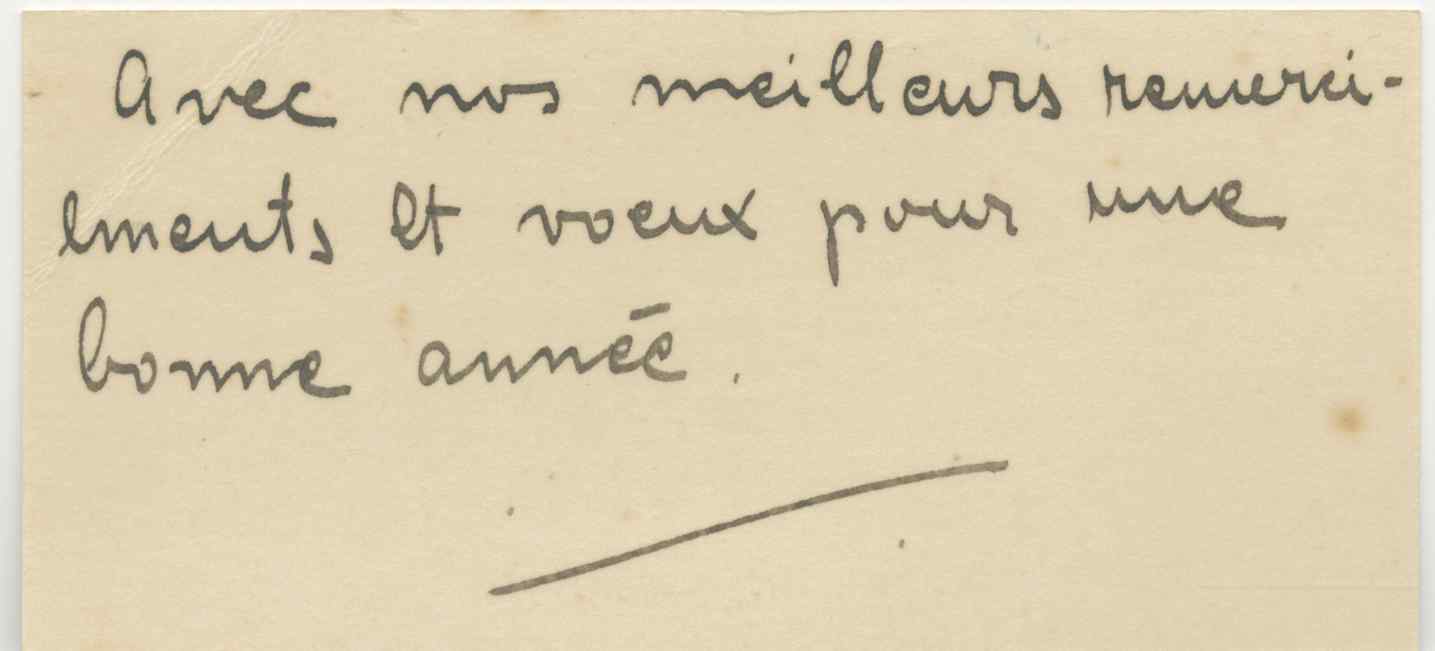 Avec nos meilleurs remerci-
ements et voeux pour une
bonne année.